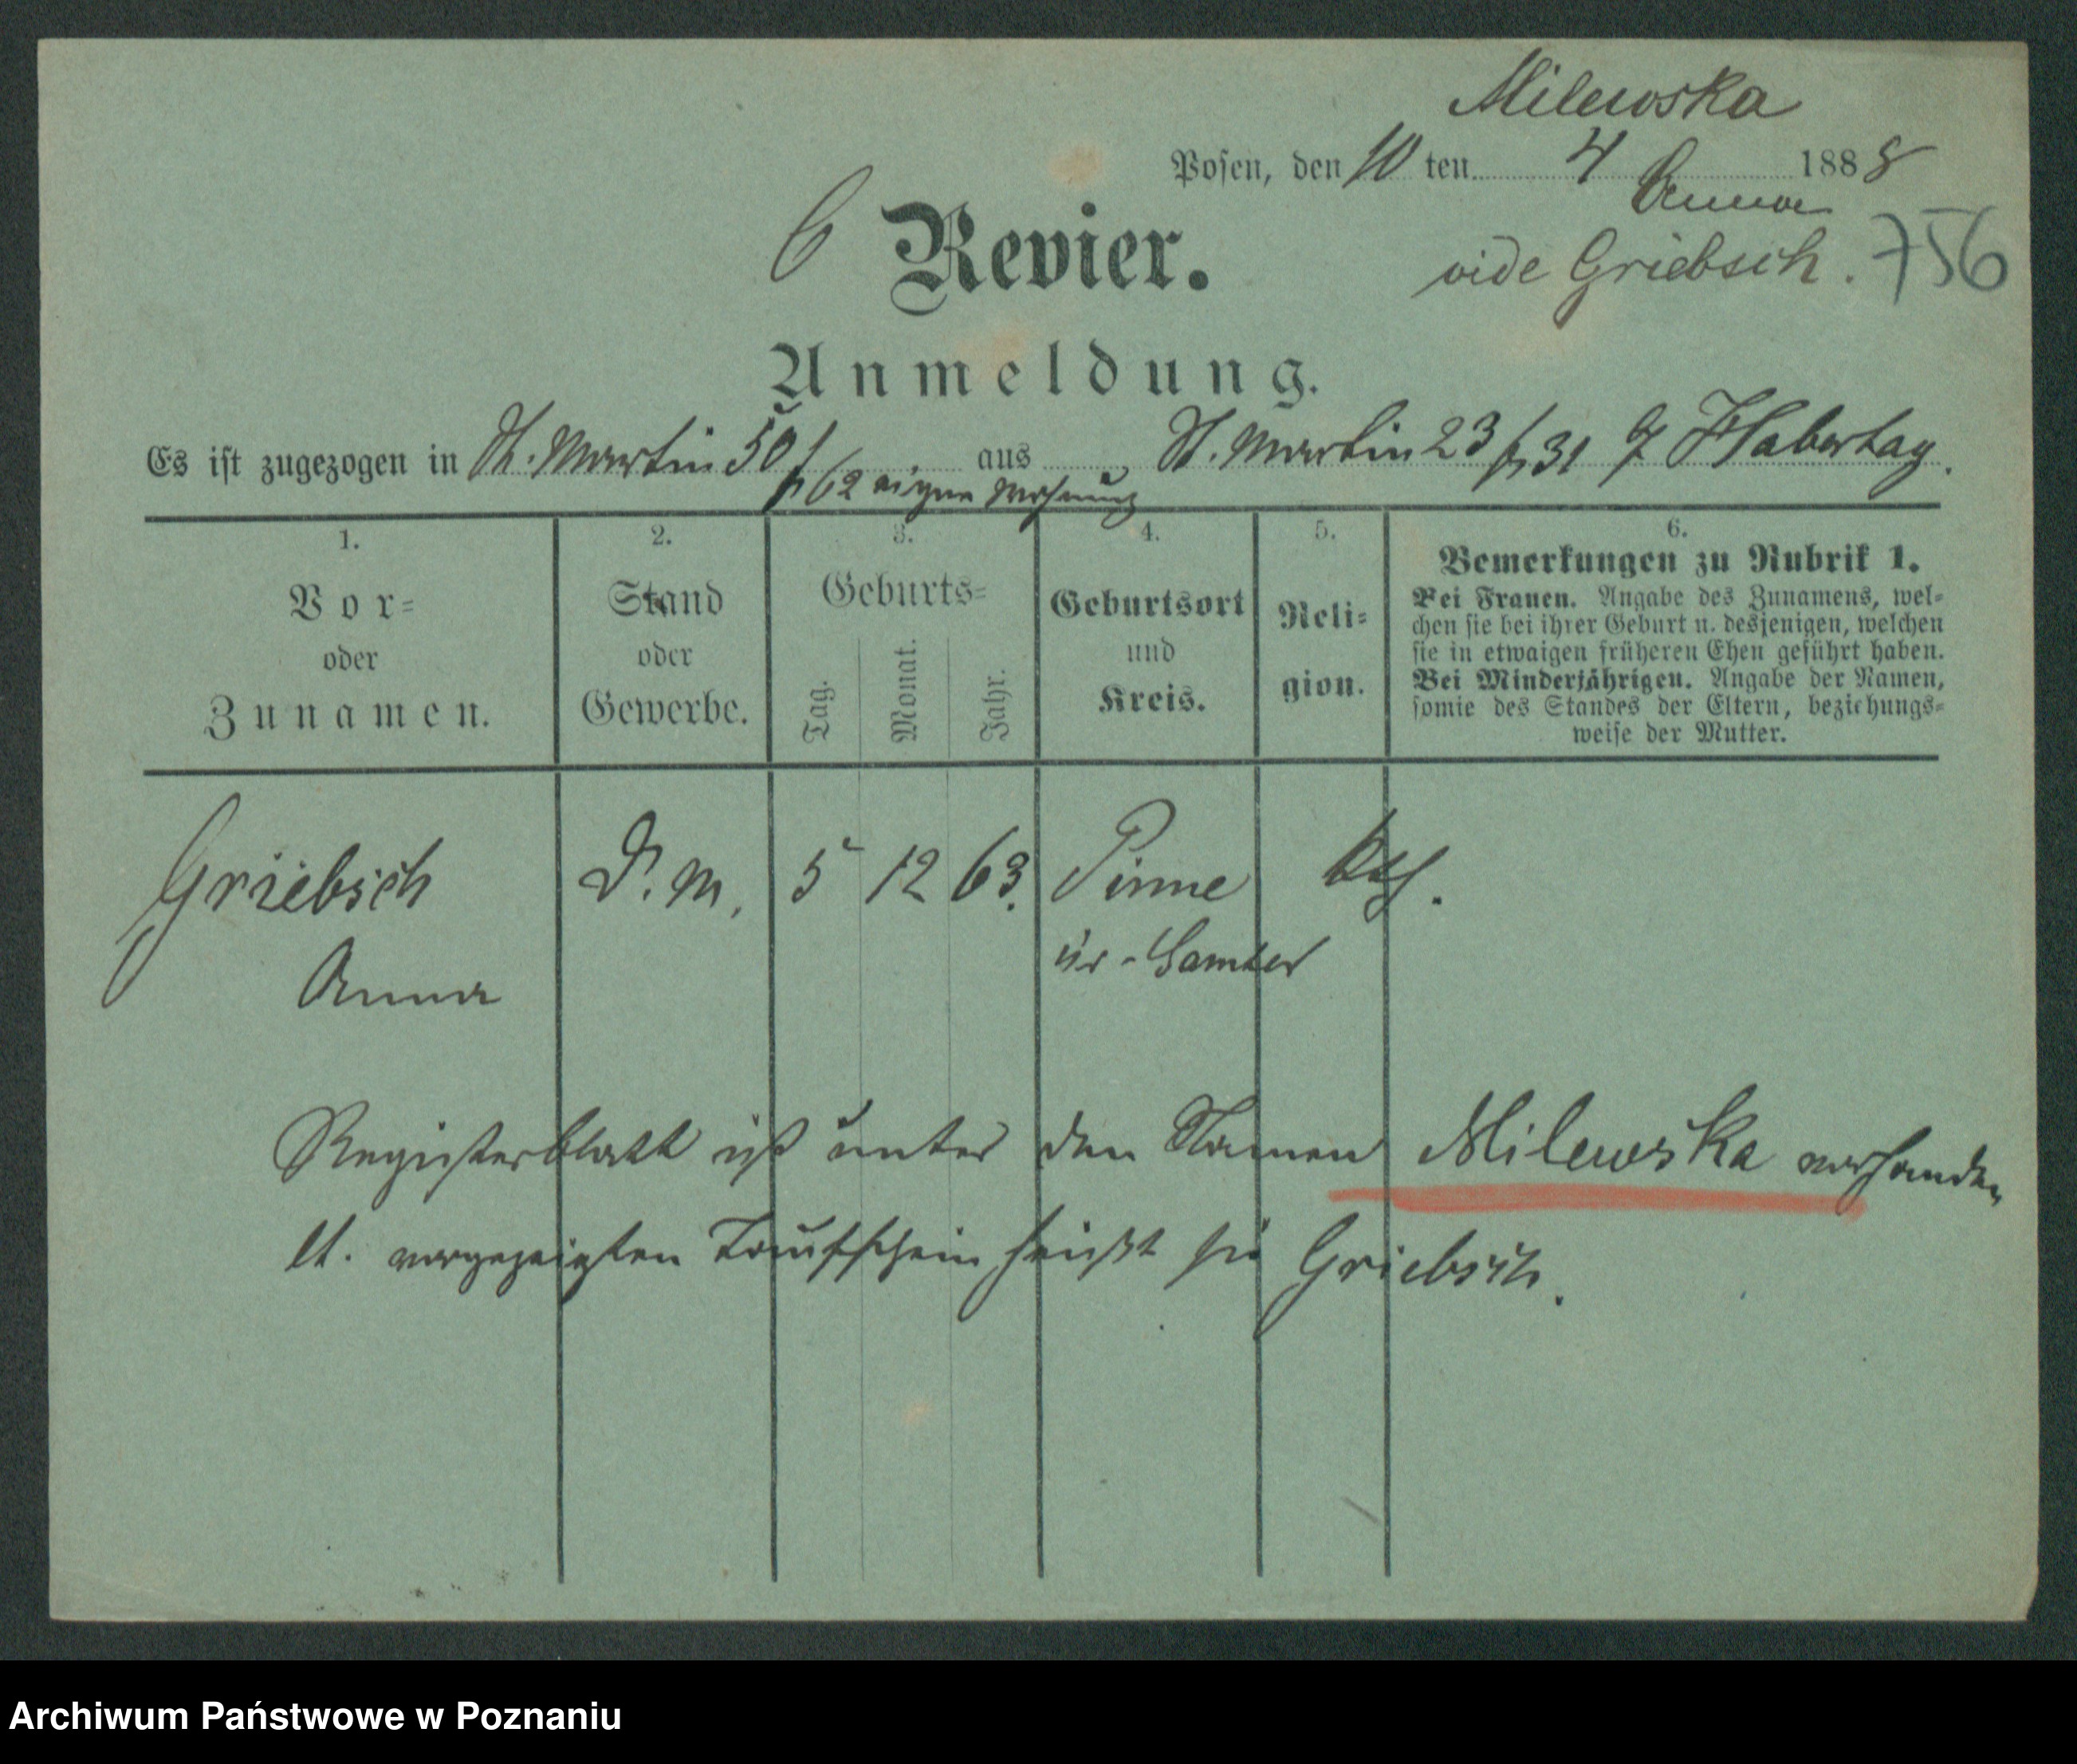 Milewska
Posen, den 10 ten 4 1888
Anna
6 Revier.
vide Griebsch. 756
Anmeldung.
Es ist zugezogen in St. Martin 50/ aus St. Martin 23 31
62 eigene Wohnung
1. 2. 3. 4. 5. 6.
Vor- oder Zunamen.
Stand oder Gewerbe.
Geburts-
Tag. Monat. Jahr.
Geburtsort und Kreis.
Religion.
Bemerkungen zu Rubrik 1.
Bei Frauen. Angabe des Zunamens, wel-
chen sie bei ihrer Geburt u. desjenigen, welchen
sie in etwaigen früheren Ehen geführt haben.
Bei Minderjährigen. Angabe der Namen,
sowie des Standes der Eltern, beziehungs-
weise der Mutter.
Griebsch D. M. 5 12 63. Pinne kth.
Anna Kr. Samter
Registerblatt ist unter den Namen Milewska vorhanden
lt. vorgezeigten Taufschein heißt sie Griebsch.
Archiwum Państwowe w Poznaniu